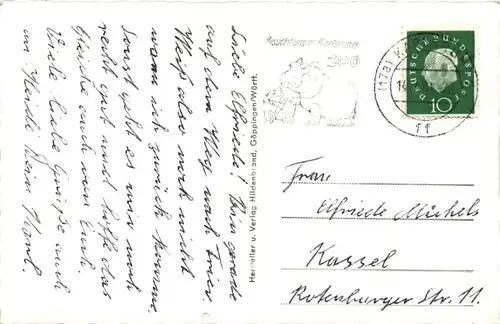 Liebe Elfriede! Bin gerade
auf dem Weg nach Trier.
Weiß also noch nicht
wann ich zurück komme.
Sonst geht es mir noch
recht gut und hoffe das
Gleiche auch von Euch.
Viele liebe Grüße auch
an Heide Dein
Hersteller u. Verlag Hildenbrand, Göppingen/Württ.
Besucht unsern Karlsruher
ZOO
DEUTSCHE BUNDESPOST
10
(17a)
ff
Frau
Elfriede Michels
Kassel
Rotenburger Str. 11.